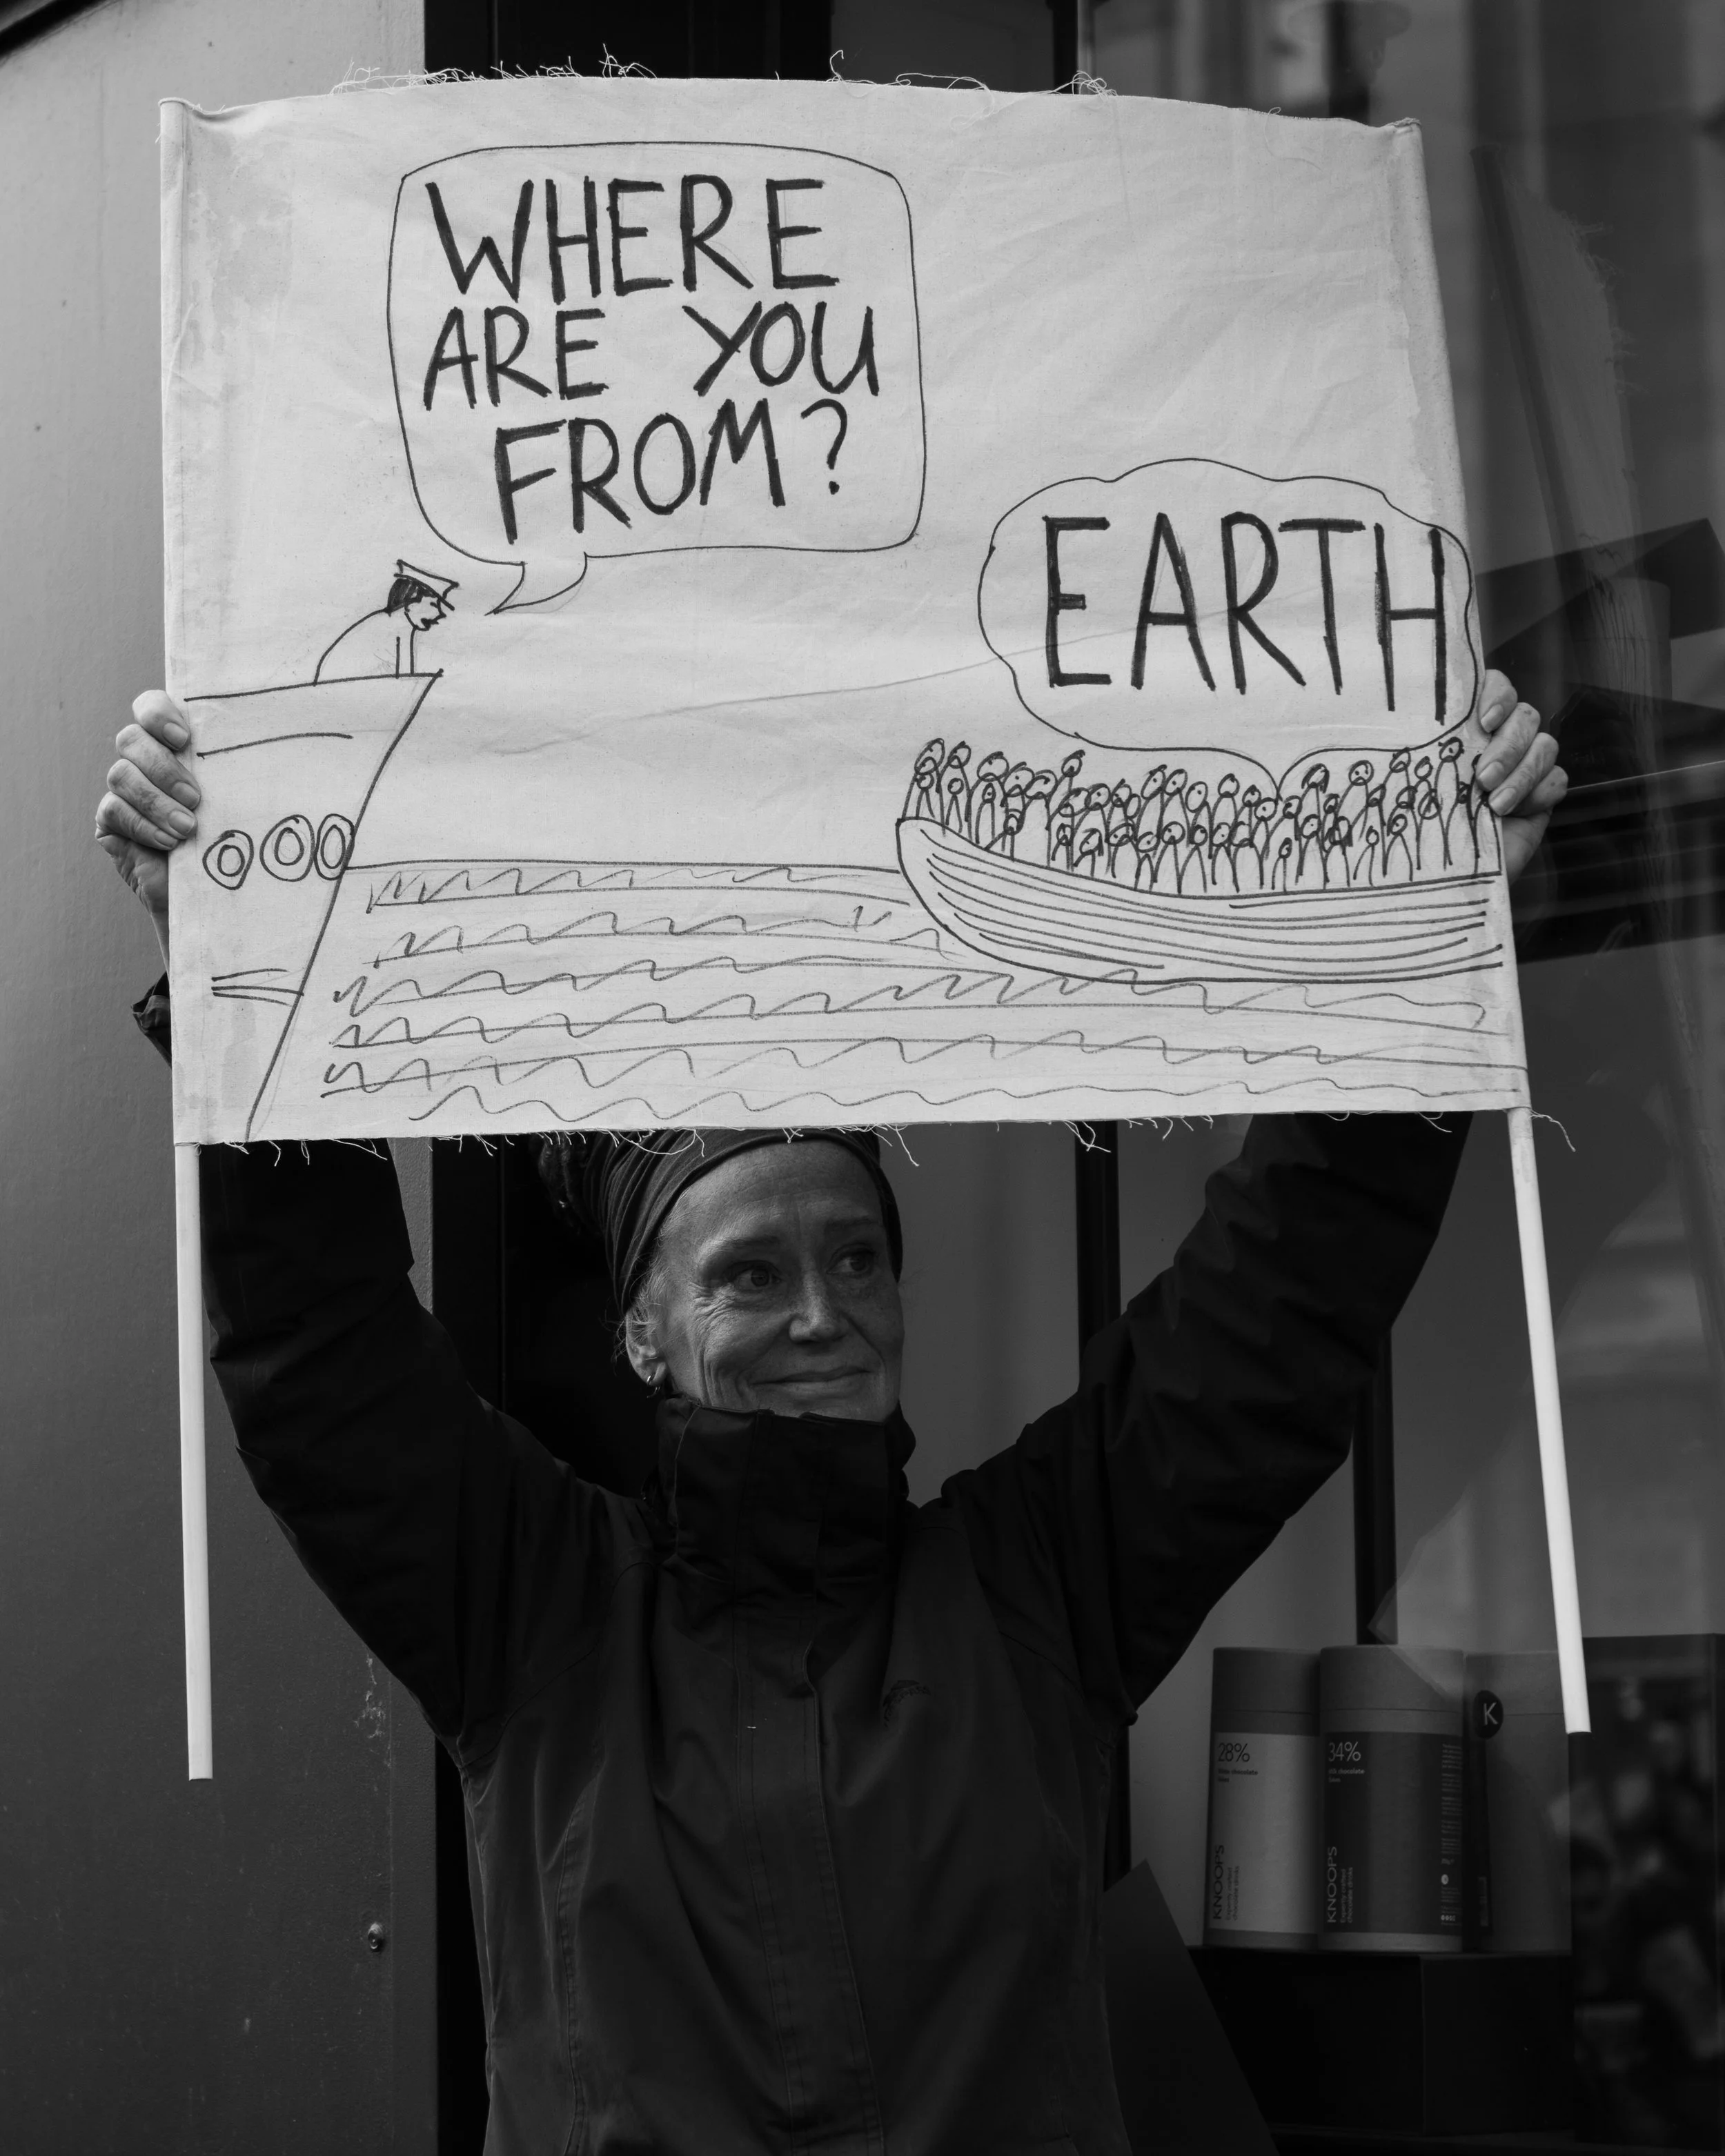 WHERE
ARE YOU
FROM?
EARTH
28%
34%
K
KNOOPS
KNOOPS